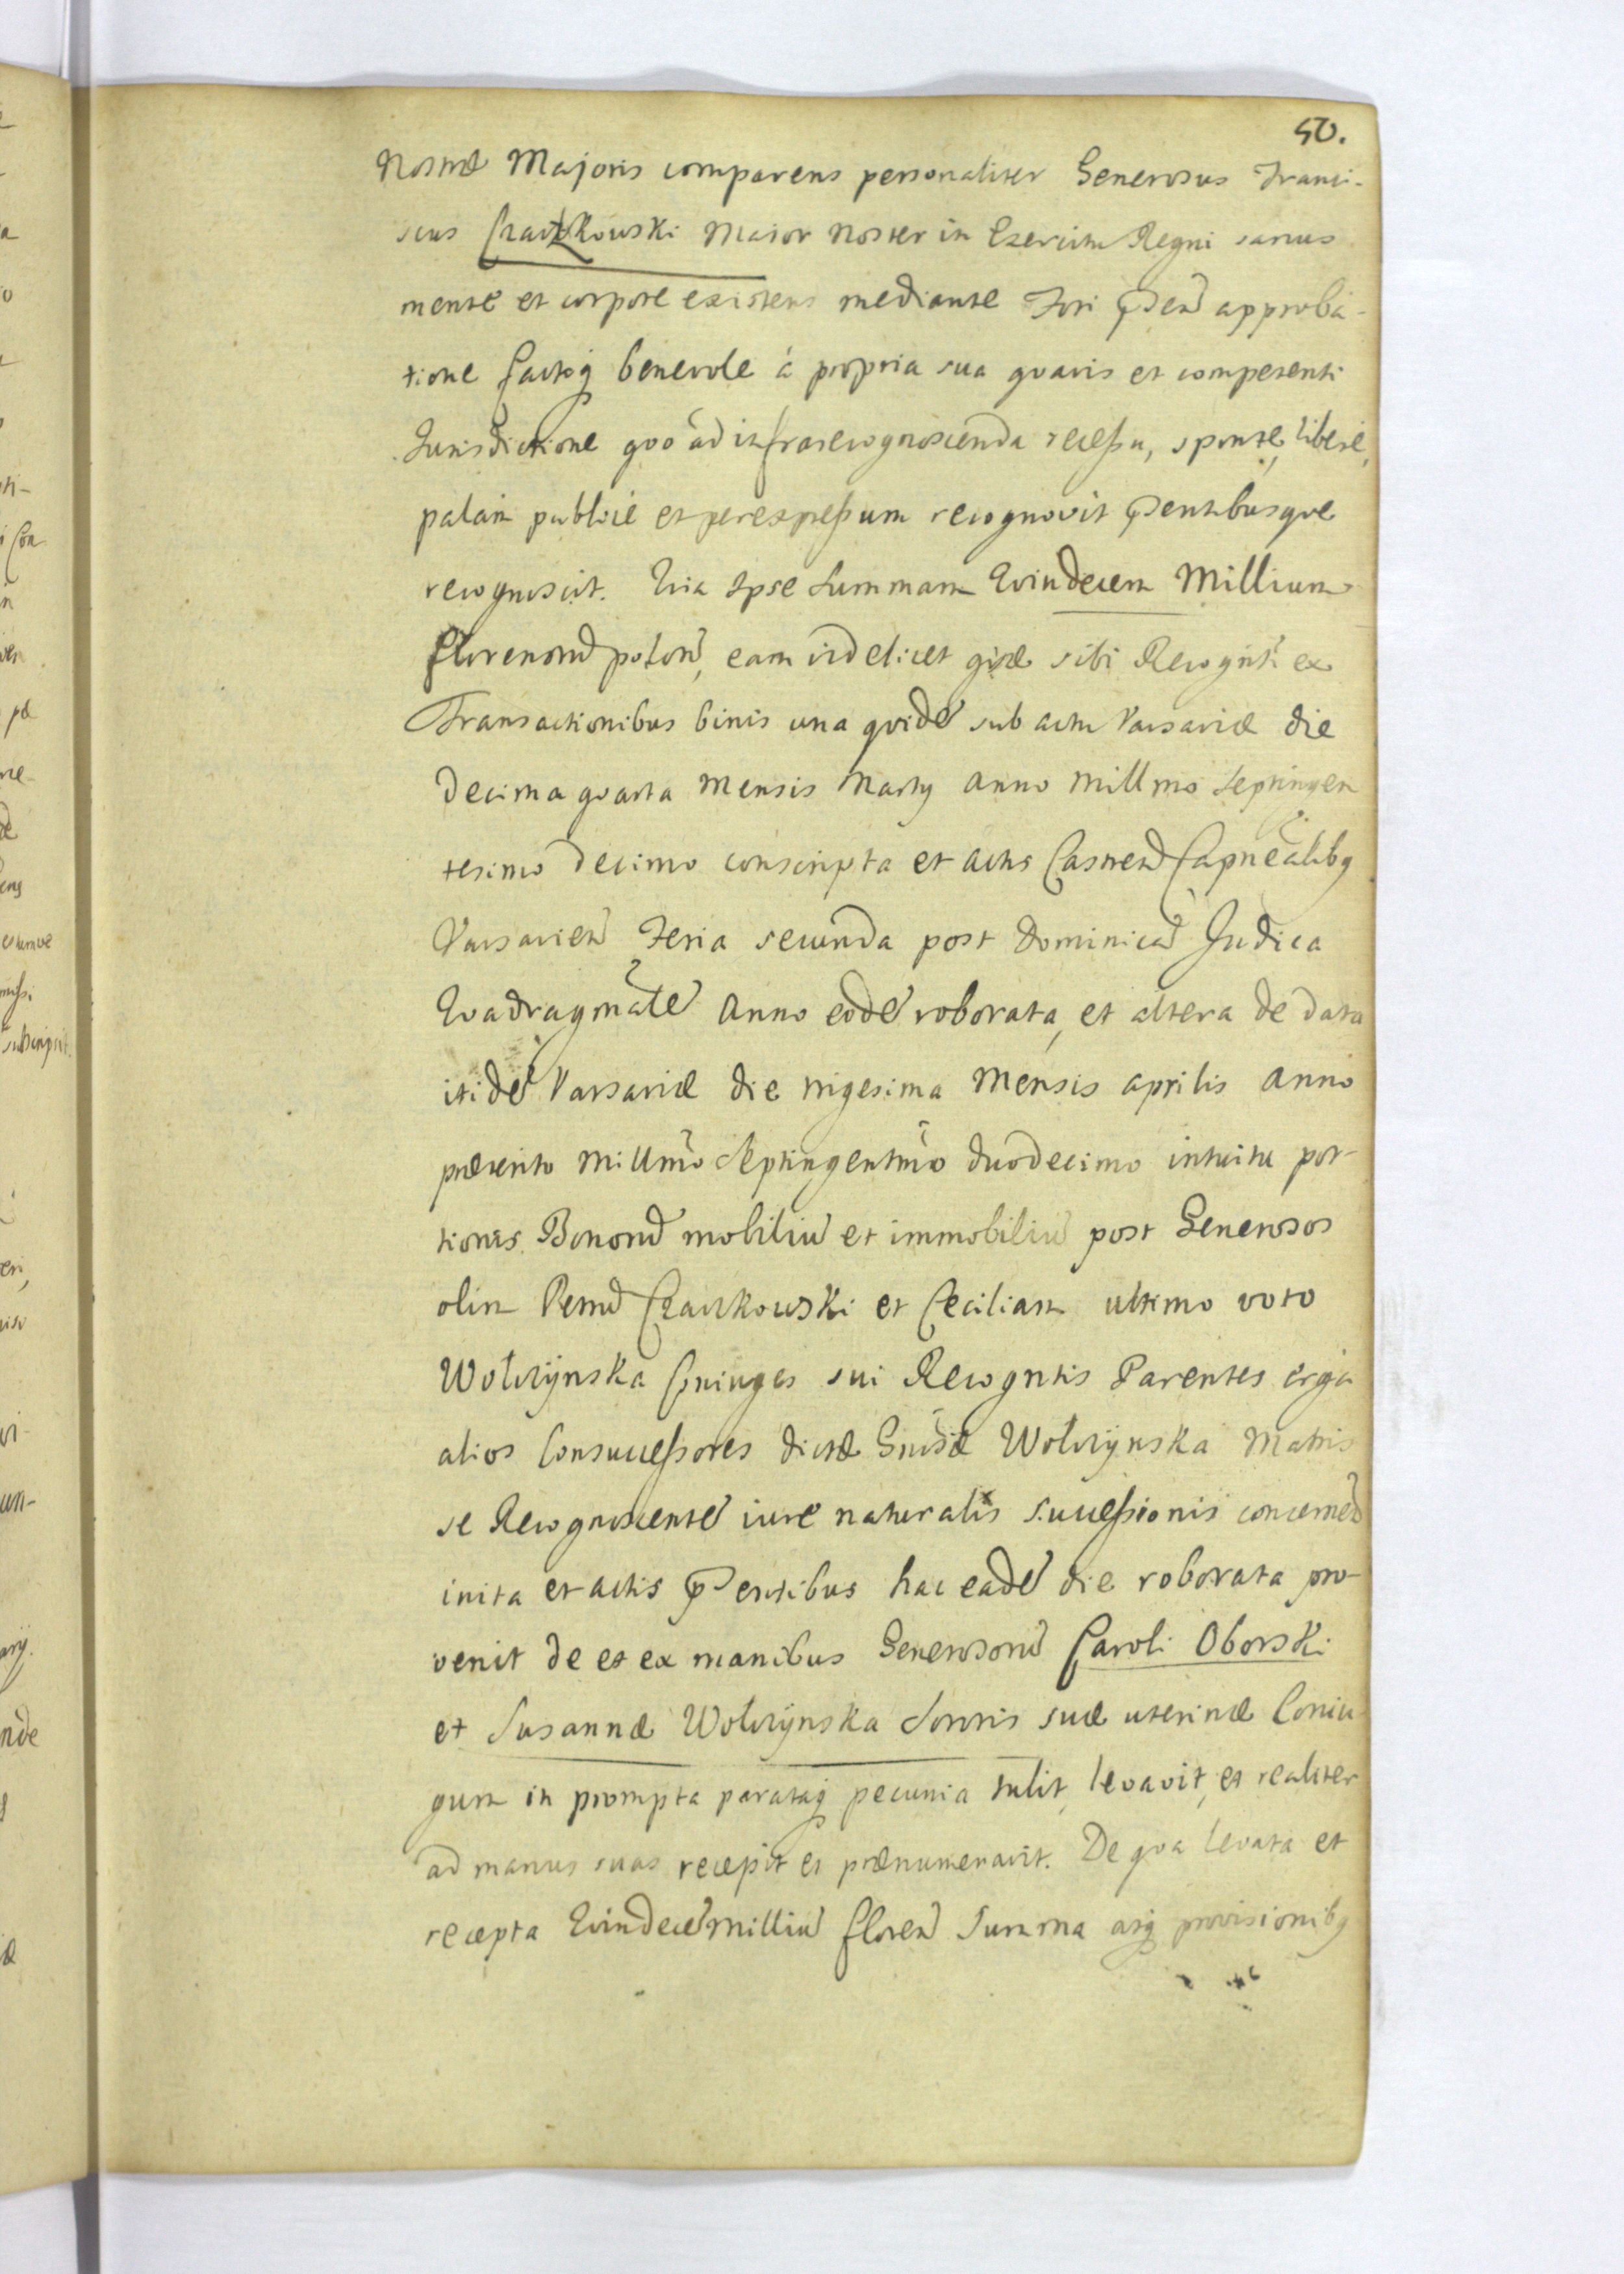 50.
Nostræ Majoris comparens personaliter Generosus Franci-
scus Czaczkowski Maior Noster in Exercitu Regni sanus
mente et corpore existens mediante Fori pntis approba-
tione factoq benevole à propria sua quavis et competenti
Jurisdictione quo ad infrarecognoscenda recessu, sponte, libere,
palam publice et per expressum recognovit pntibusque
recognoscit. Quia Ipse Summam Quindecem Millium
florenorũ polonũ, eam videlicet quæ sibi Recognti ex
Transactionibus binis una quidẽ sub actu Varsaviæ die
Decima quarta Mensis Martij Anno Millmo Septingen
tesimo Decimo conscripta et actis Castreñ Capnealibq
Varsavieñ Feria secunda post Dominicã Judica
Quadragmalẽ Anno eodẽ roborata, et altera de data
itidẽ Varsaviæ die vigesima Mensis Aprilis Anno
præsenti Millmo Septingentmo duodecimo intuitu por-
tiones Bonorũ mobiliũ et immobiliũ post Generosos
olim Petrũ Czaczkowski et Ceciliam ultimo voto
Wolczÿnska Coniuges sui Recogntis Parentes erga
alios Consuccessores dictæ Gnosæ Wolczÿnska Matris
se Recognoscentẽ iure naturalis successionis concerneñ
inita et actis pntibus hac eadẽ die roborata pro-
venit de et ex manibus Generosorũ Caroli Oborski
et Susannæ Wolczÿnska Sororis suæ uterinæ Coniu
gum in prompta parataq pecunia tulit, levavit, et realiter
ad manus suas recepit et prænumeravit. De qua levata et
recepta Quindecẽ Milliũ floreñ Summa atq provisionibq